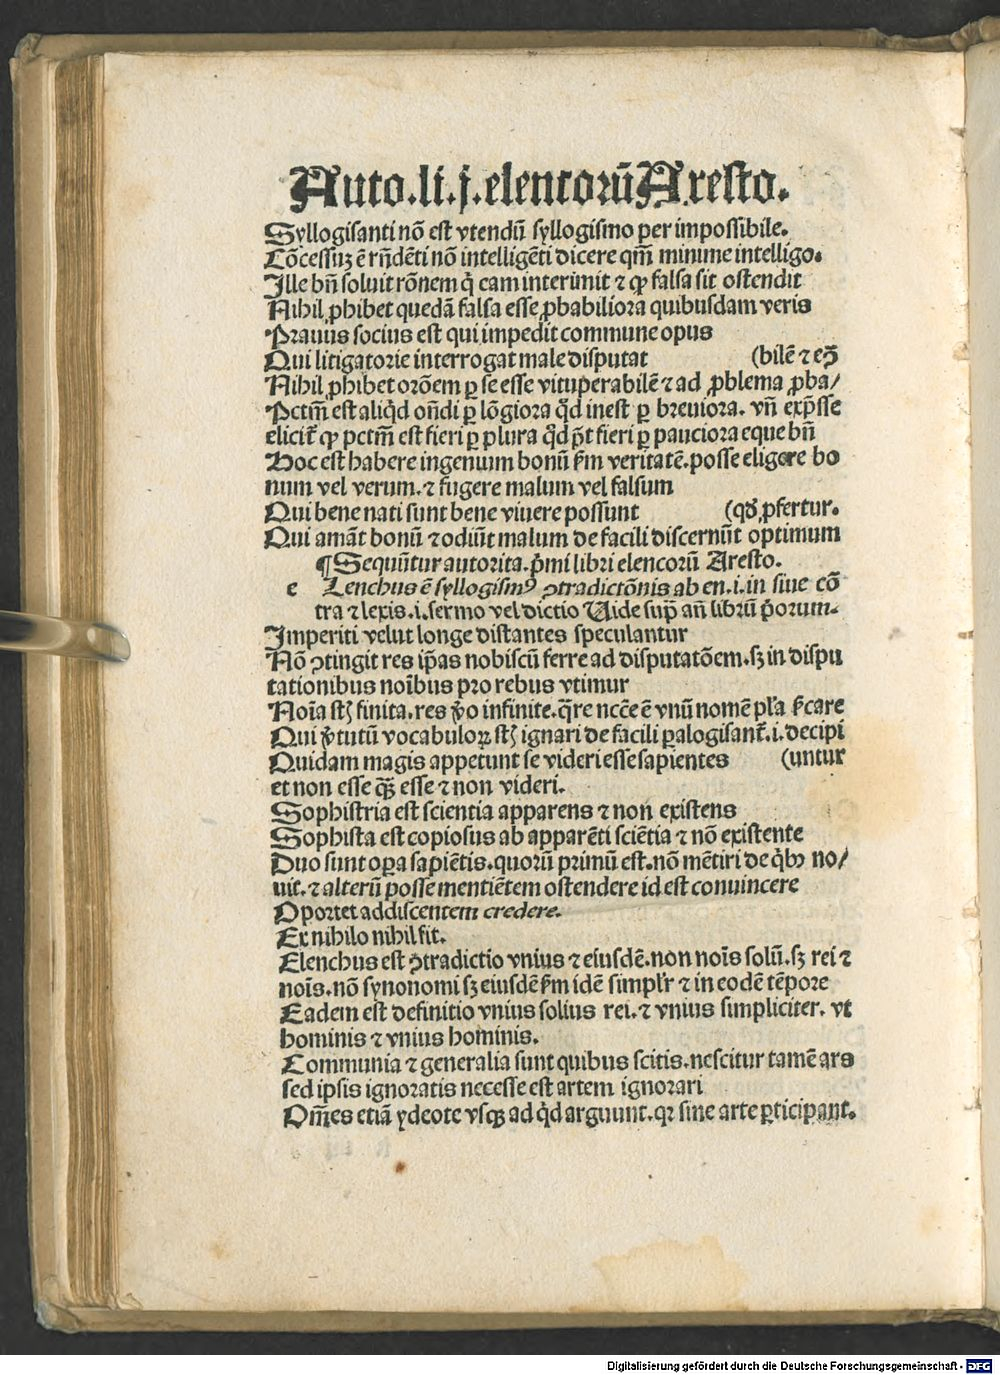 Auto.li.j.elencorū Aresto.
Syllogisanti nō est vtendū syllogismo per impossibile.
Cōcessuꝫ ē rn̄dēti nō intelligēti dicere qm̄ minime intelligo.
Ille bn̄ soluit rōnem q̇ eam interimit ⁊ ꝙ falsa sit ostendit
Nihil ꝓhibet quedā falsa esse ꝓbabiliora quibusdam veris
Prauus socius est qui impedit commune opus
Qui litigatorie interrogat male disputat (bilē ⁊ eꝯ̄
Nihil ꝓhibet orōem ꝑ se esse vituperabilē ⁊ ad ꝓblema ꝓba/
Pctm̄ est aliq̇d on̄di ꝑ lōgiora q̇d inest ꝑ breuiora. vn̄ exp̄sse
elicit̄ ꝙ pctm̄ est fieri ꝑ plura q̇d p̄t fieri ꝑ pauciora eque bn̄
Hoc est habere ingenium bonū ẜm veritatē. posse eligere bo
num vel verum. ⁊ fugere malum vel falsum
Qui bene nati sunt bene viuere possunt (qḋ ꝓfertur.
Qui amāt bonū ⁊ odiūt malum de facili discernūt optimum
¶ Sequūtur autorita. p̄mi libri elencorū Aresto.
e Lenchus ē syllogismꝰ ꝯtradictōnis ab en.i.in siue cō
tra ⁊ lexis.i.sermo vel dictio Uide sup̄ an̄ librū p̄orum.
Imperiti velut longe distantes speculantur
Nō ꝯtingit res ip̄as nobiscū ferre ad disputatōem. sꝫ in dispu
tationibus noı̄bus pro rebus vtimur
Noı̄a st̄ finita. res v̄o infinite. q̄re ncc̄e ē vnū nomē pl̄a ẜcare
Qui v̇tutū vocabuloꝝ st̄ ignari de facili ꝑalogisant̄.i.decipi
Quidam magis appetunt se videri esse sapientes (untur
et non esse qꝫ̄ esse ⁊ non videri.
Sophistria est scientia apparens ⁊ non existens
Sophista est copiosus ab apparēti sciētia ⁊ nō existente
Duo sunt oꝑa sapiētis. quorū primū est. nō mētiri de q̇bꝰ no/
uit. ⁊ alterū posse mentiētem ostendere id est conuincere
Oportet addiscentem credere.
Ex nihilo nihil fit.
Elenchus est ꝯtradictio vnius ⁊ eiusdē. non noı̄s solū. sꝫ rei ⁊
noı̄s. nō synonomi sꝫ eiusdē ẜm idē simpl̄r ⁊ in eodē tēpore
Eadem est definitio vnius solius rei. ⁊ vnius simpliciter. vt
hominis ⁊ vnius hominis.
Communia ⁊ generalia sunt quibus scitis. nescitur tamē ars
sed ipsis ignoratis necesse est artem ignorari
Om̄es etiā ydeote vsqꝫ ad q̇d arguunt. qꝛ sine arte ꝑticipant.
Digitalisierung gefördert durch die Deutsche Forschungsgemeinschaft - DFG